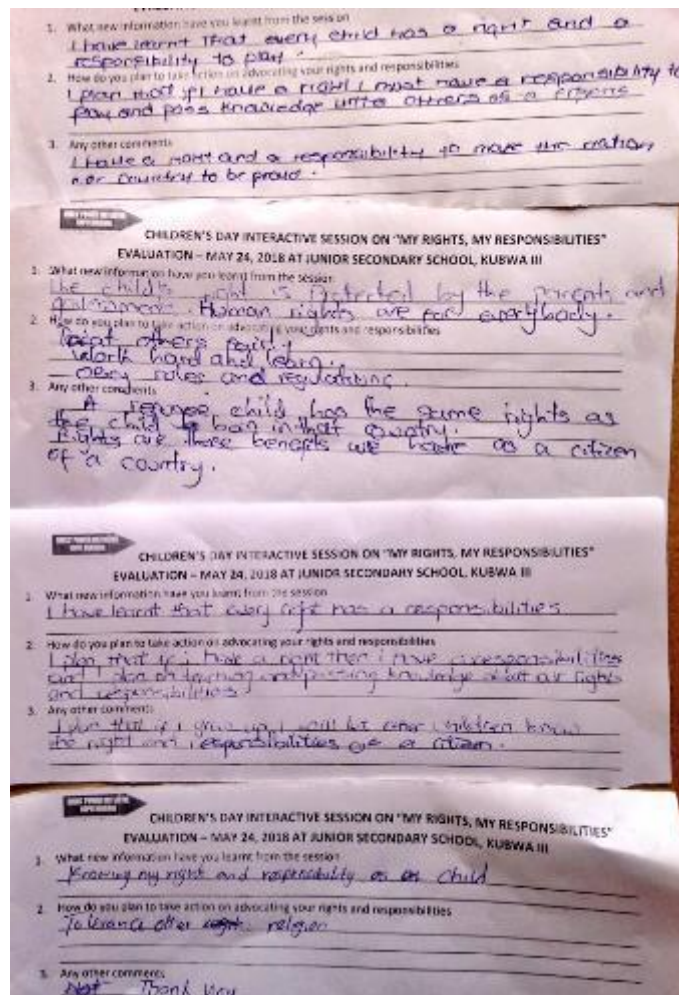 1. What new information have you learnt from the session
I have learnt That every child has a right and a
responsibility to play.
2. How do you plan to take action on advocating your rights and responsibilities
I plan that if I have a right I must have a responsibility to
and pass knowledge others as a
3. Any other comments
I have a right and a responsibility to make the nation
or Country to be proud.
CHILDREN'S DAY INTERACTIVE SESSION ON "MY RIGHTS, MY RESPONSIBILITIES"
EVALUATION – MAY 24, 2018 AT JUNIOR SECONDARY SCHOOL, KUBWA III
1. What new information have you learnt from the session
the child's right is protected by the parents and
government. Human rights are for everybody.
2. How do you plan to take action on advocating your rights and responsibilities
Treat others
Work hard and learn.
Obey rules and regulations.
3. Any other comments
A refugee child has the same rights as
the child born in that country.
Rights are those benefits we have as a citizen
of a country.
CHILDREN'S DAY INTERACTIVE SESSION ON "MY RIGHTS, MY RESPONSIBILITIES"
EVALUATION – MAY 24, 2018 AT JUNIOR SECONDARY SCHOOL, KUBWA III
1. What new information have you learnt from the session
I have learnt that every right has a responsibilities
2. How do you plan to take action on advocating your rights and responsibilities
I plan that if i have a right then i have a responsibilities
and I plan on learning and passing knowledge about our rights
and responsibilities
3. Any other comments
I plan that if i grow up I will let other children know
the right and responsibilities as a citizen.
CHILDREN'S DAY INTERACTIVE SESSION ON "MY RIGHTS, MY RESPONSIBILITIES"
EVALUATION – MAY 24, 2018 AT JUNIOR SECONDARY SCHOOL, KUBWA III
1. What new information have you learnt from the session
Knowing my right and responsibility as an child
2. How do you plan to take action on advocating your rights and responsibilities
Tolerance other religion
3. Any other comments
Thank you